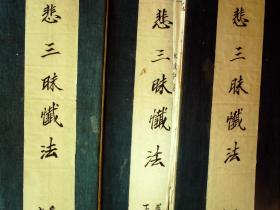 悲三昧懺法
悲三昧懺法
悲三昧懺法